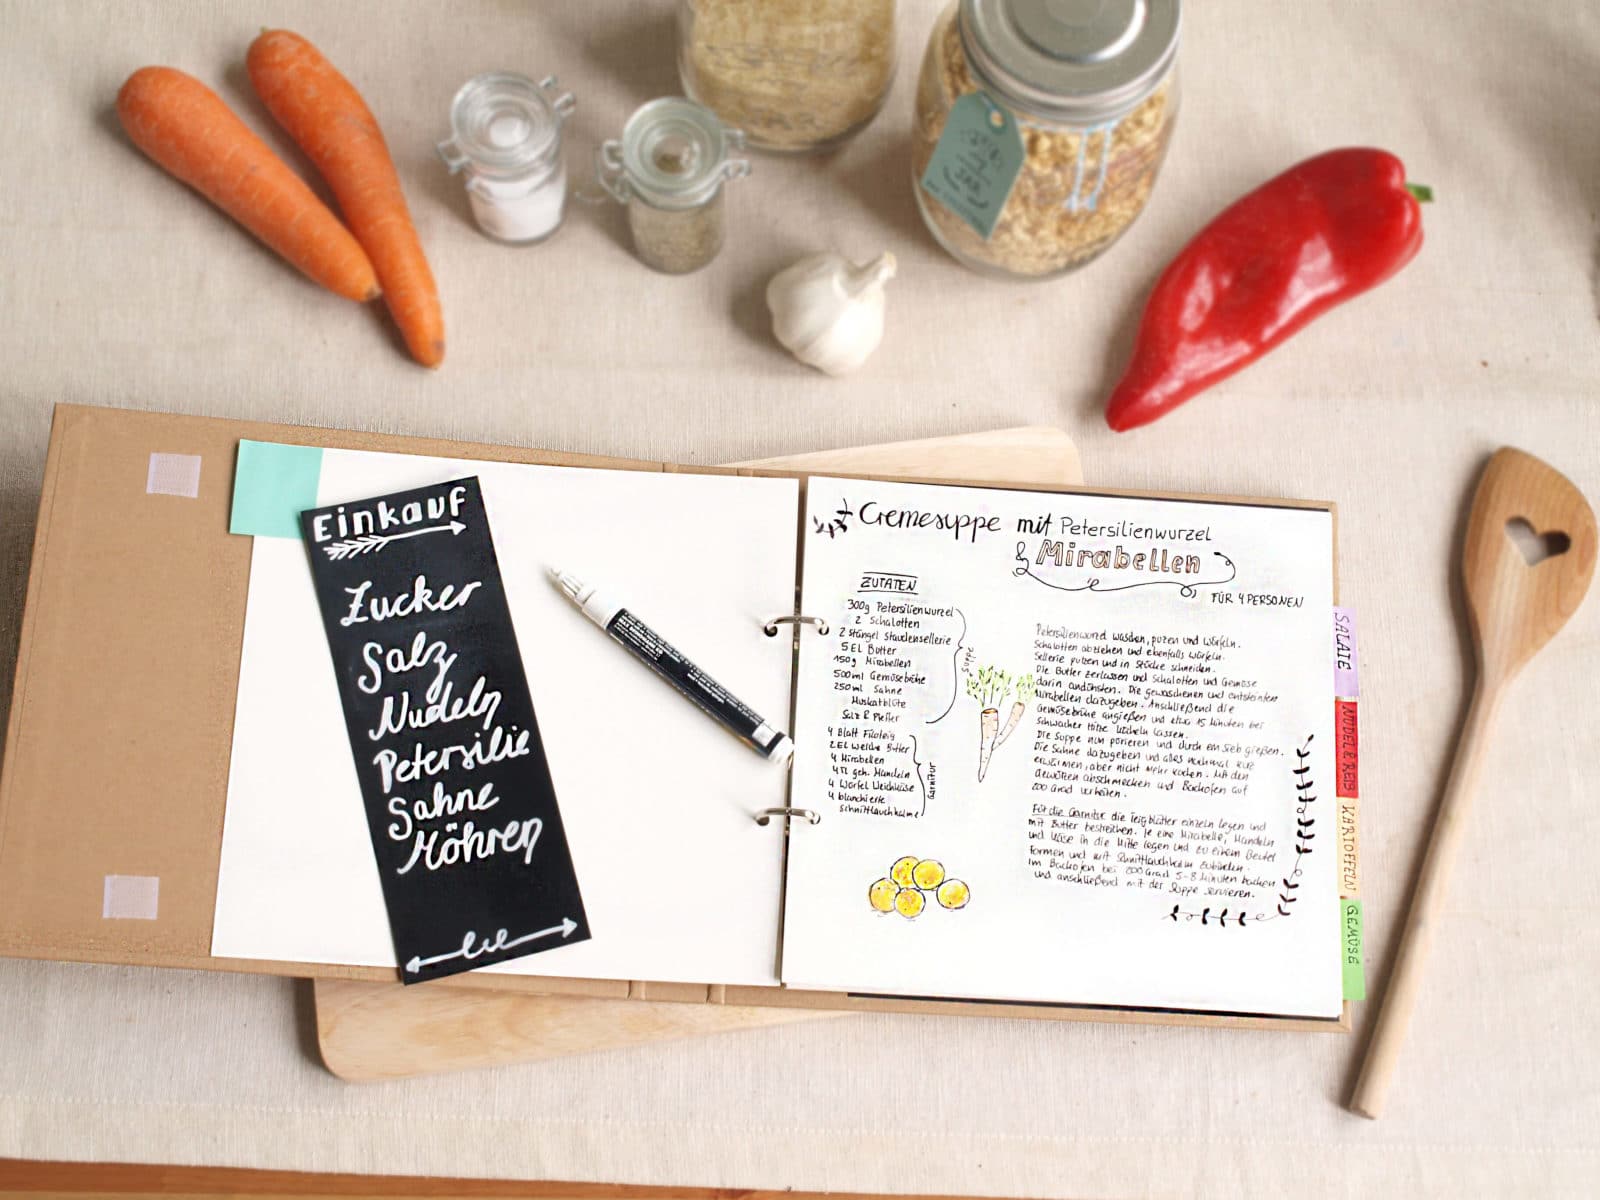 JAR
Einkauf
Zucker
Salz
Nudeln
Petersilie
Sahne
Möhren
Cremesuppe mit Petersilienwurzel
& Mirabellen
FÜR 4 PERSONEN
ZUTATEN
300g Petersilienwurzel
2 Schalotten
2 Stängel Staudensellerie
5 EL Butter
150g Mirabellen
500ml Gemüsebrühe
250ml Sahne
Muskatblüte
Salz & Pfeffer
Suppe
4 Blatt Filoteig
2 EL weiche Butter
4 Mirabellen
4 TL geh. Mandeln
4 Würfel Weichkäse
4 blanchierte
Schnittlauchhalme
Garnitur
Petersilienwurzel waschen, puzen und würfeln.
Schalotten abziehen und ebenfalls würfeln.
Sellerie putzen und in Stücke schneiden.
Die Butter zerlassen und Schalotten und Gemüse
darin andünsten. Die gewaschenen und entsteinten
Mirabellen dazugeben. Anschließend die
Gemüsebrühe angießen und etwa 15 Minuten bei
schwacher Hitze köcheln lassen.
Die Suppe nun pürieren und durch ein Sieb gießen.
Die Sahne dazugeben und alles nochmal kurz
erwärmen, aber nicht mehr kochen. Mit den
Gewürzen abschmecken und Backofen auf
200 Grad vorheizen.
Für die Garnitur die Teigblätter einzeln legen und
mit Butter bestreichen. Je eine Mirabelle, Mandeln
und Käse in die Mitte legen und zu einem Beutel
formen und mit Schnittlauchhalm zubinden.
Im Backofen bei 200 Grad 5-8 Minuten backen
und anschließend mit der Suppe servieren.
SALATE
NUDEL & REIS
KARTOFFELN
GEMÜSE